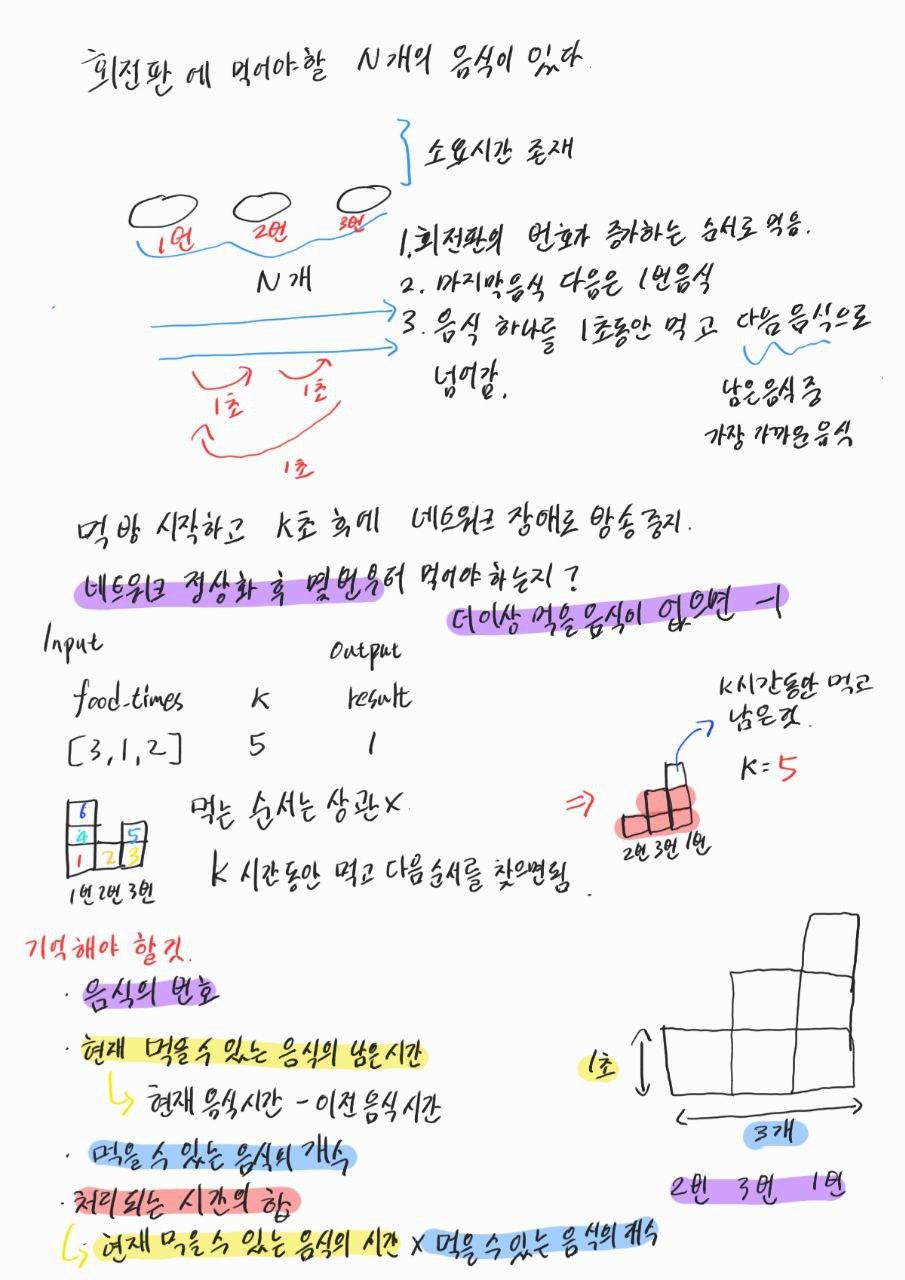 회전판에 먹어야할 N개의 음식이 있다.
소요시간 존재
1번 2번 3번
N개
1. 회전판의 번호가 증가하는 순서로 먹음.
2. 마지막음식 다음은 1번음식
3. 음식 하나를 1초동안 먹고 다음 음식으로
넘어감.
1초 1초
1초
남은음식 중
가장 가까운 음식
먹방 시작하고 K초 후에 네트워크 장애로 방송중지.
네트워크 정상화 후 몇번부터 먹어야 하는지?
더이상 먹을 음식이 없으면 -1
Input
Output
food_times K result
[3,1,2] 5 1
K시간동안 먹고
남은것.
K=5
6
4 5
1 2 3
1번 2번 3번
먹는 순서는 상관X
⇒
2번 3번 1번
K 시간동안 먹고 다음순서를 찾으면됨.
기억해야 할것.
· 음식의 번호
· 현재 먹을수 있는 음식의 남은시간
현재 음식시간 - 이전음식시간
· 먹을수 있는 음식의 개수
· 처리되는 시간의 합
현재 먹을수 있는 음식의 시간 x 먹을수있는 음식의 개수
1초
3개
2번 3번 1번